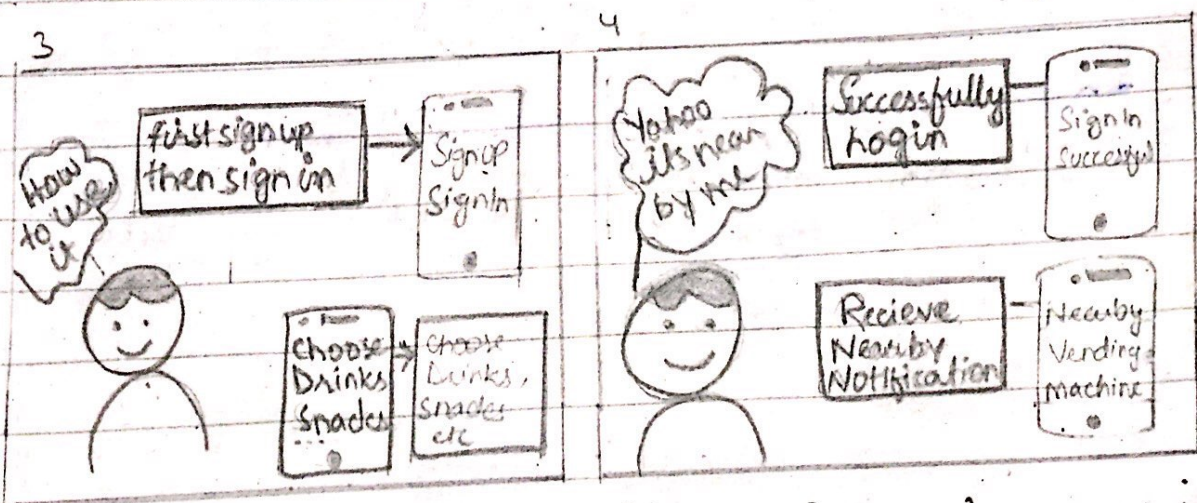 3
How
to use
it
first sign up
then sign in
Signup
SignIn
Choose
Drinks
Snacks
...
Choose
Drinks,
Snacks
etc
4
Yahoo
its near
by me
Successfully
Login
SignIn
Successful
Recieve
Nearby
Notification
Nearby
Vending
Machine